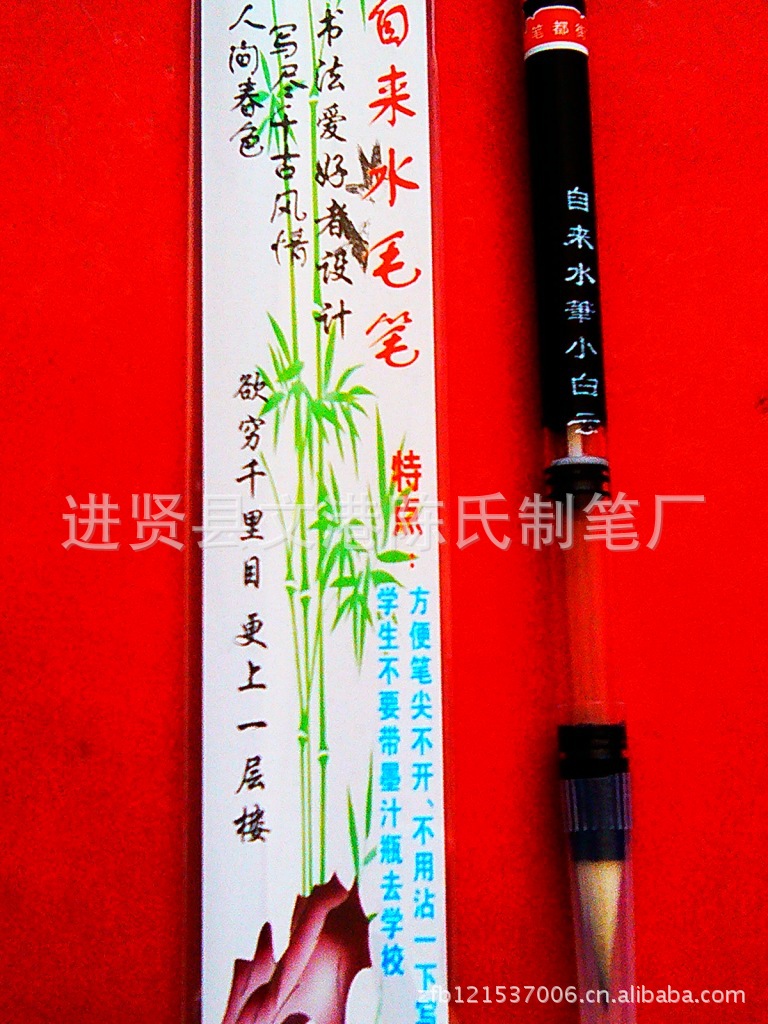 自来水毛笔
书法爱好者设计
写尽千古风情
人间春色
欲穷千里目 更上一层楼
特点：
方便笔尖不开、不用沾一下写
学生不要带墨汁瓶去学校
笔都
自来水筆小白云
进贤县文港陈氏制笔厂
zfb121537006.cn.alibaba.com